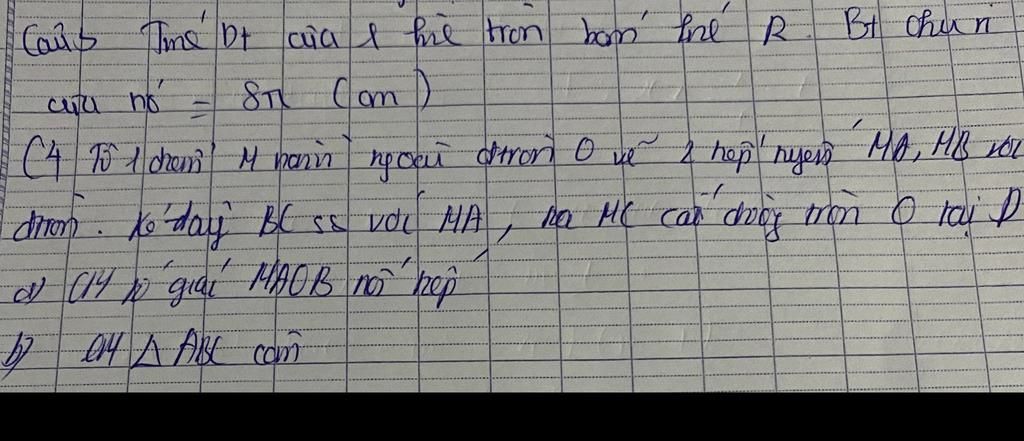 Câu 5 Tính Dt của 1 hình tròn bán kính R. Bt chu vi
của nó = 8π (cm)
C4 Từ 1 điểm M nằm ngoài đtròn O vẽ 2 tiếp tuyến MA, MB với
đtròn. Kẻ dây BC ss với MA, MC cắt đường tròn O tại D
a) CM tứ giác MAOB nội tiếp
b) CM Δ ABC cân